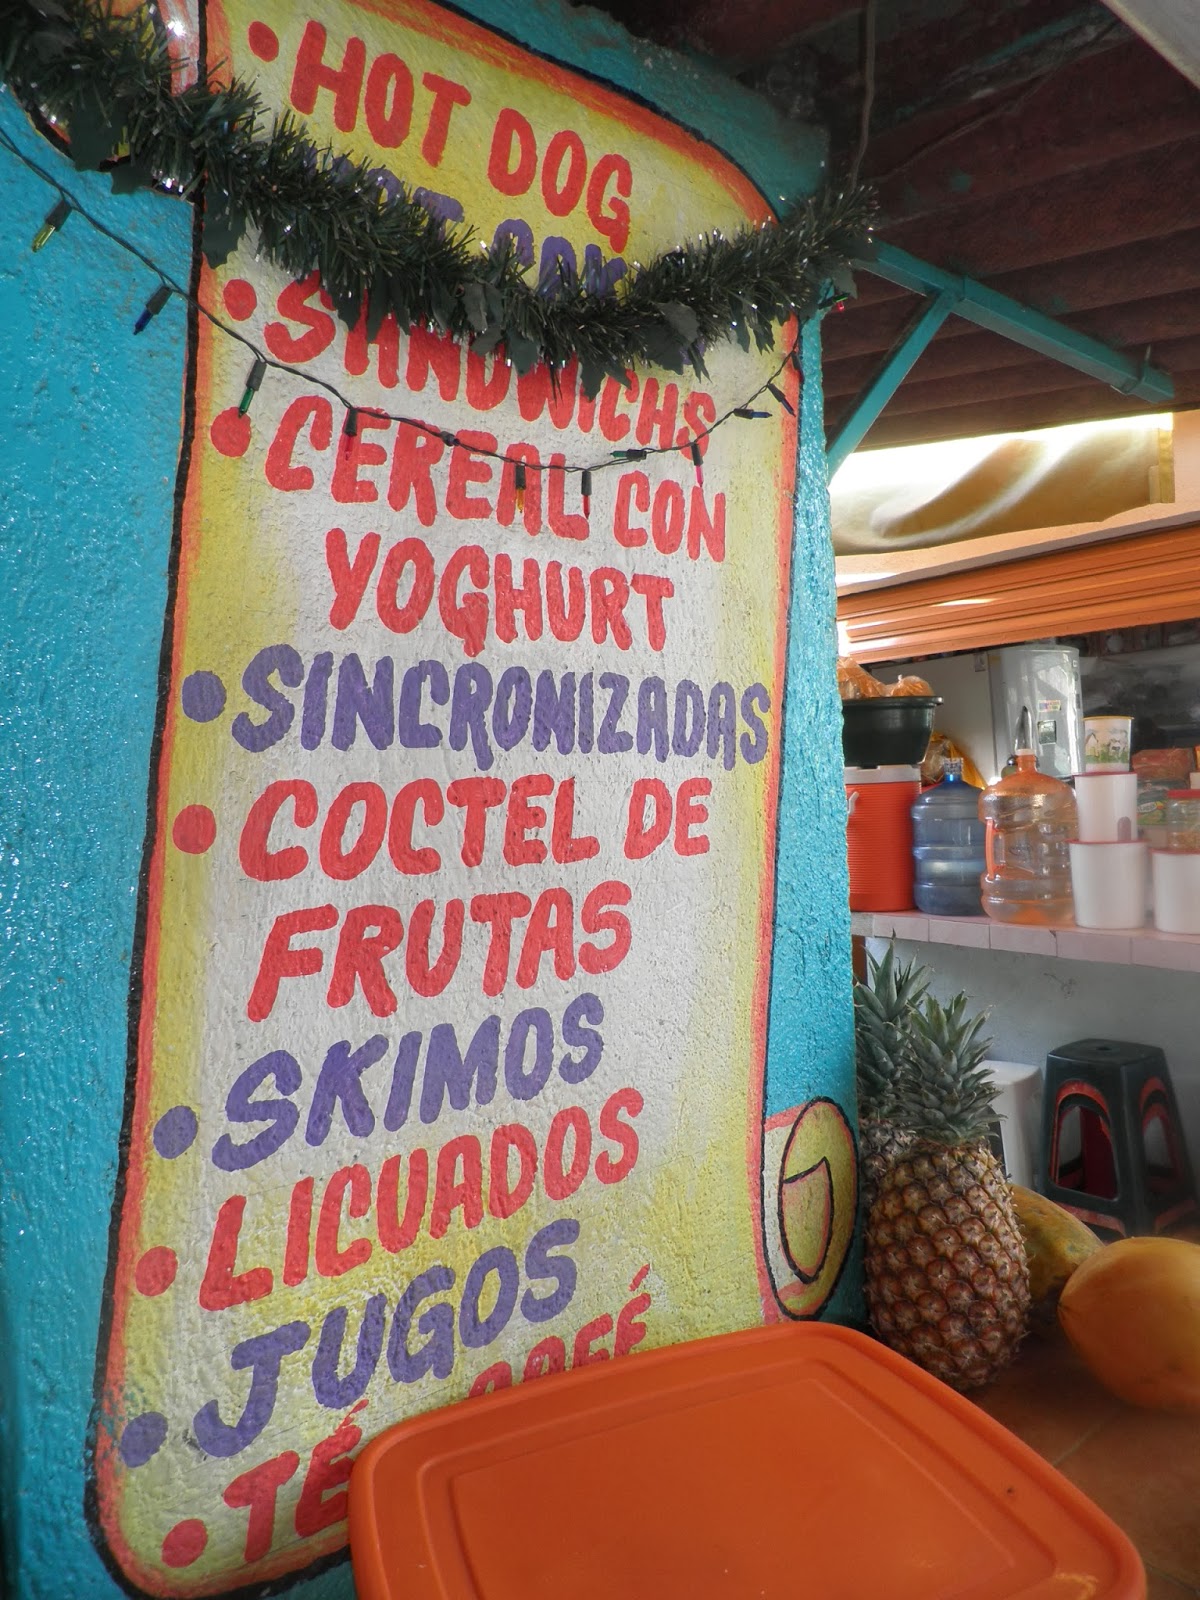 • HOT DOG
• SANDWICHS
• CEREAL CON
YOGHURT
• SINCRONIZADAS
• COCTEL DE
FRUTAS
• SKIMOS
• LICUADOS
• JUGOS
• TÉ CAFÉ